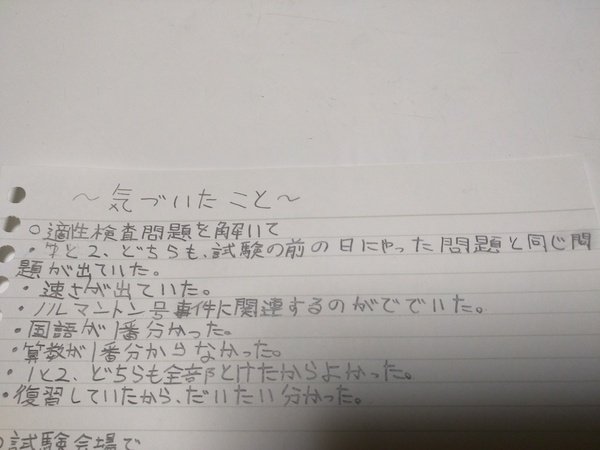 ～気づいたこと～
○適性検査問題を解いて
・1と2、どちらも、試験の前の日にやった問題と同じ問
題が出ていた。
・速さが出ていた。
・ノルマントン号事件に関連するのがでていた。
・国語が1番分かった。
・算数が1番分からなかった。
・1と2、どちらも全部とけたからよかった。
・復習していたから、だいたい分かった。
○試験会場で